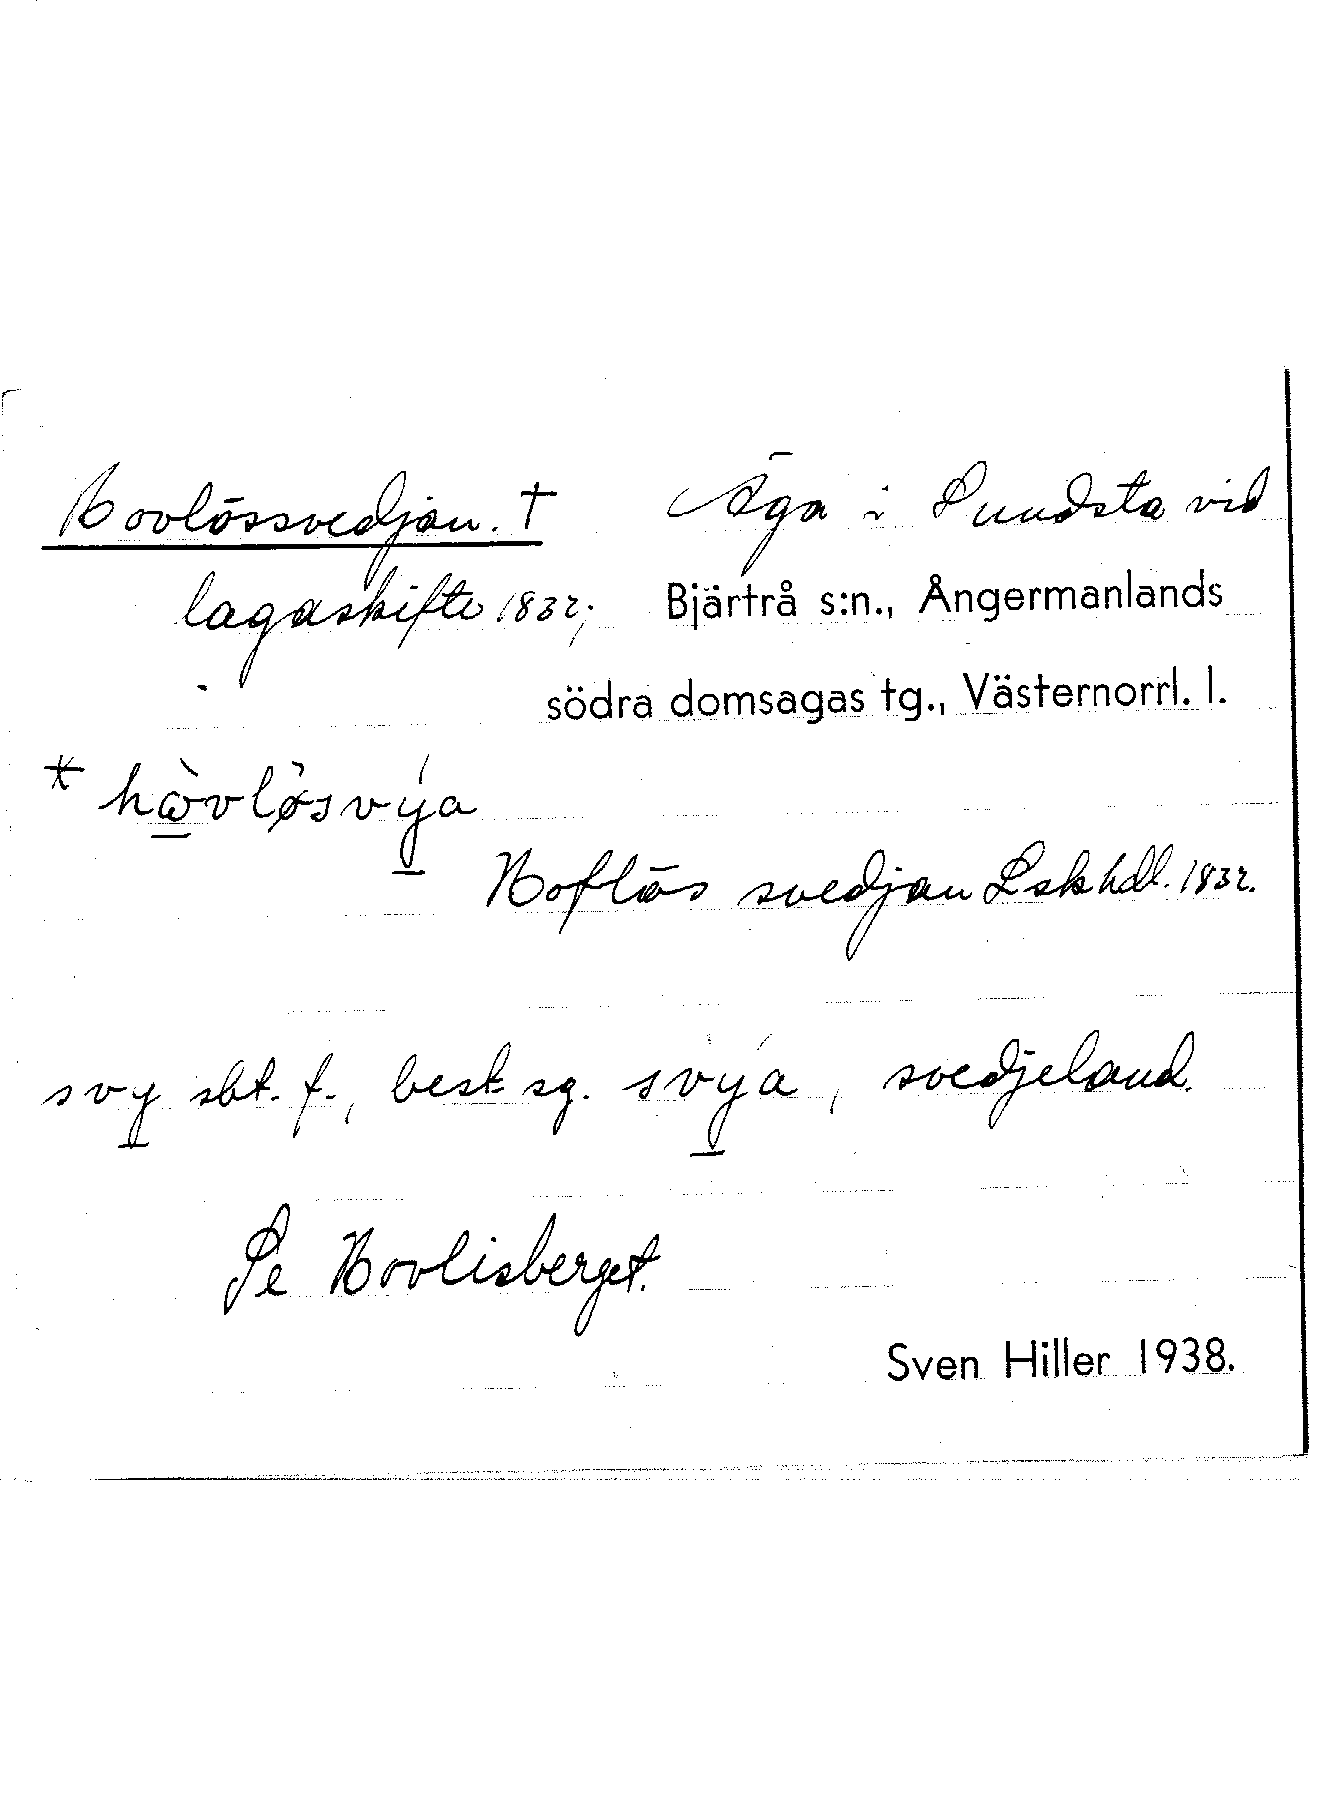 Hovlössvedjan. † Äga i Sundsta vid
lagaskifte 1832; Bjärtrå s:n., Ångermanlands
södra domsagas tg., Västernorrl. l.
* hɷ̀vlø̀svýa
Hoflös svedjan Lskhdl. 1832.
svy sbt. f., best sg. svýa, svedjeland.
Se Hovlisberget.
Sven Hiller 1938.